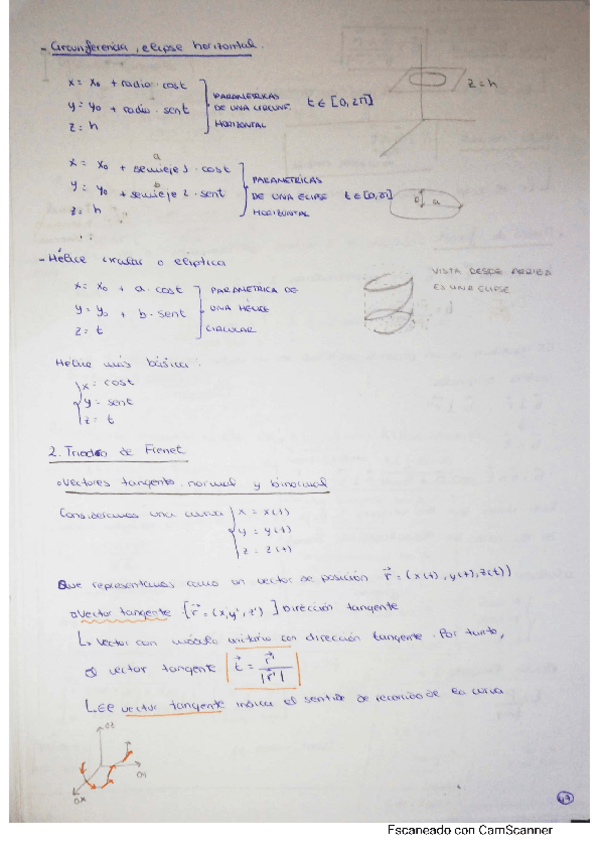 - Circunferencia, elipse horizontal.
x = x₀ + radio · cost
y = y₀ + radio · sent
z = h
PARAMETRICAS
DE UNA CIRCUNF.
HORIZONTAL
t ∈ [0, 2π]
z = h
x = x₀ + semieje 1 · cost
a
y = y₀ + semieje 2 · sent
b
z = h
PARAMETRICAS
DE UNA ELIPSE
HORIZONTAL
a
- Hélice circular o elíptica
x = x₀ + a · cost
y = y₀ + b · sent
z = t
PARAMETRICA DE
UNA HÉLICE
CIRCULAR
VISTA DESDE ARRIBA
ES UNA ELIPSE
Hélice más básica:
x = cost
y = sent
z = t
2. Triedro de Frenet
Vectores tangente, normal y binormal
Consideramos una curva
x = x(t)
y = y(t)
z = z(t)
Que representamos como un vector de posición r⃗ = (x(t), y(t), z(t))
Vector tangente [r⃗ = (x', y', z')] Dirección tangente
↳ Vector con módulo unitario con dirección tangente. Por tanto,
vector tangente t⃗ = r⃗' / |r⃗'|
vector tangente indica el sentido de recorrido de la curva
OZ
OX
67
Escaneado con CamScanner